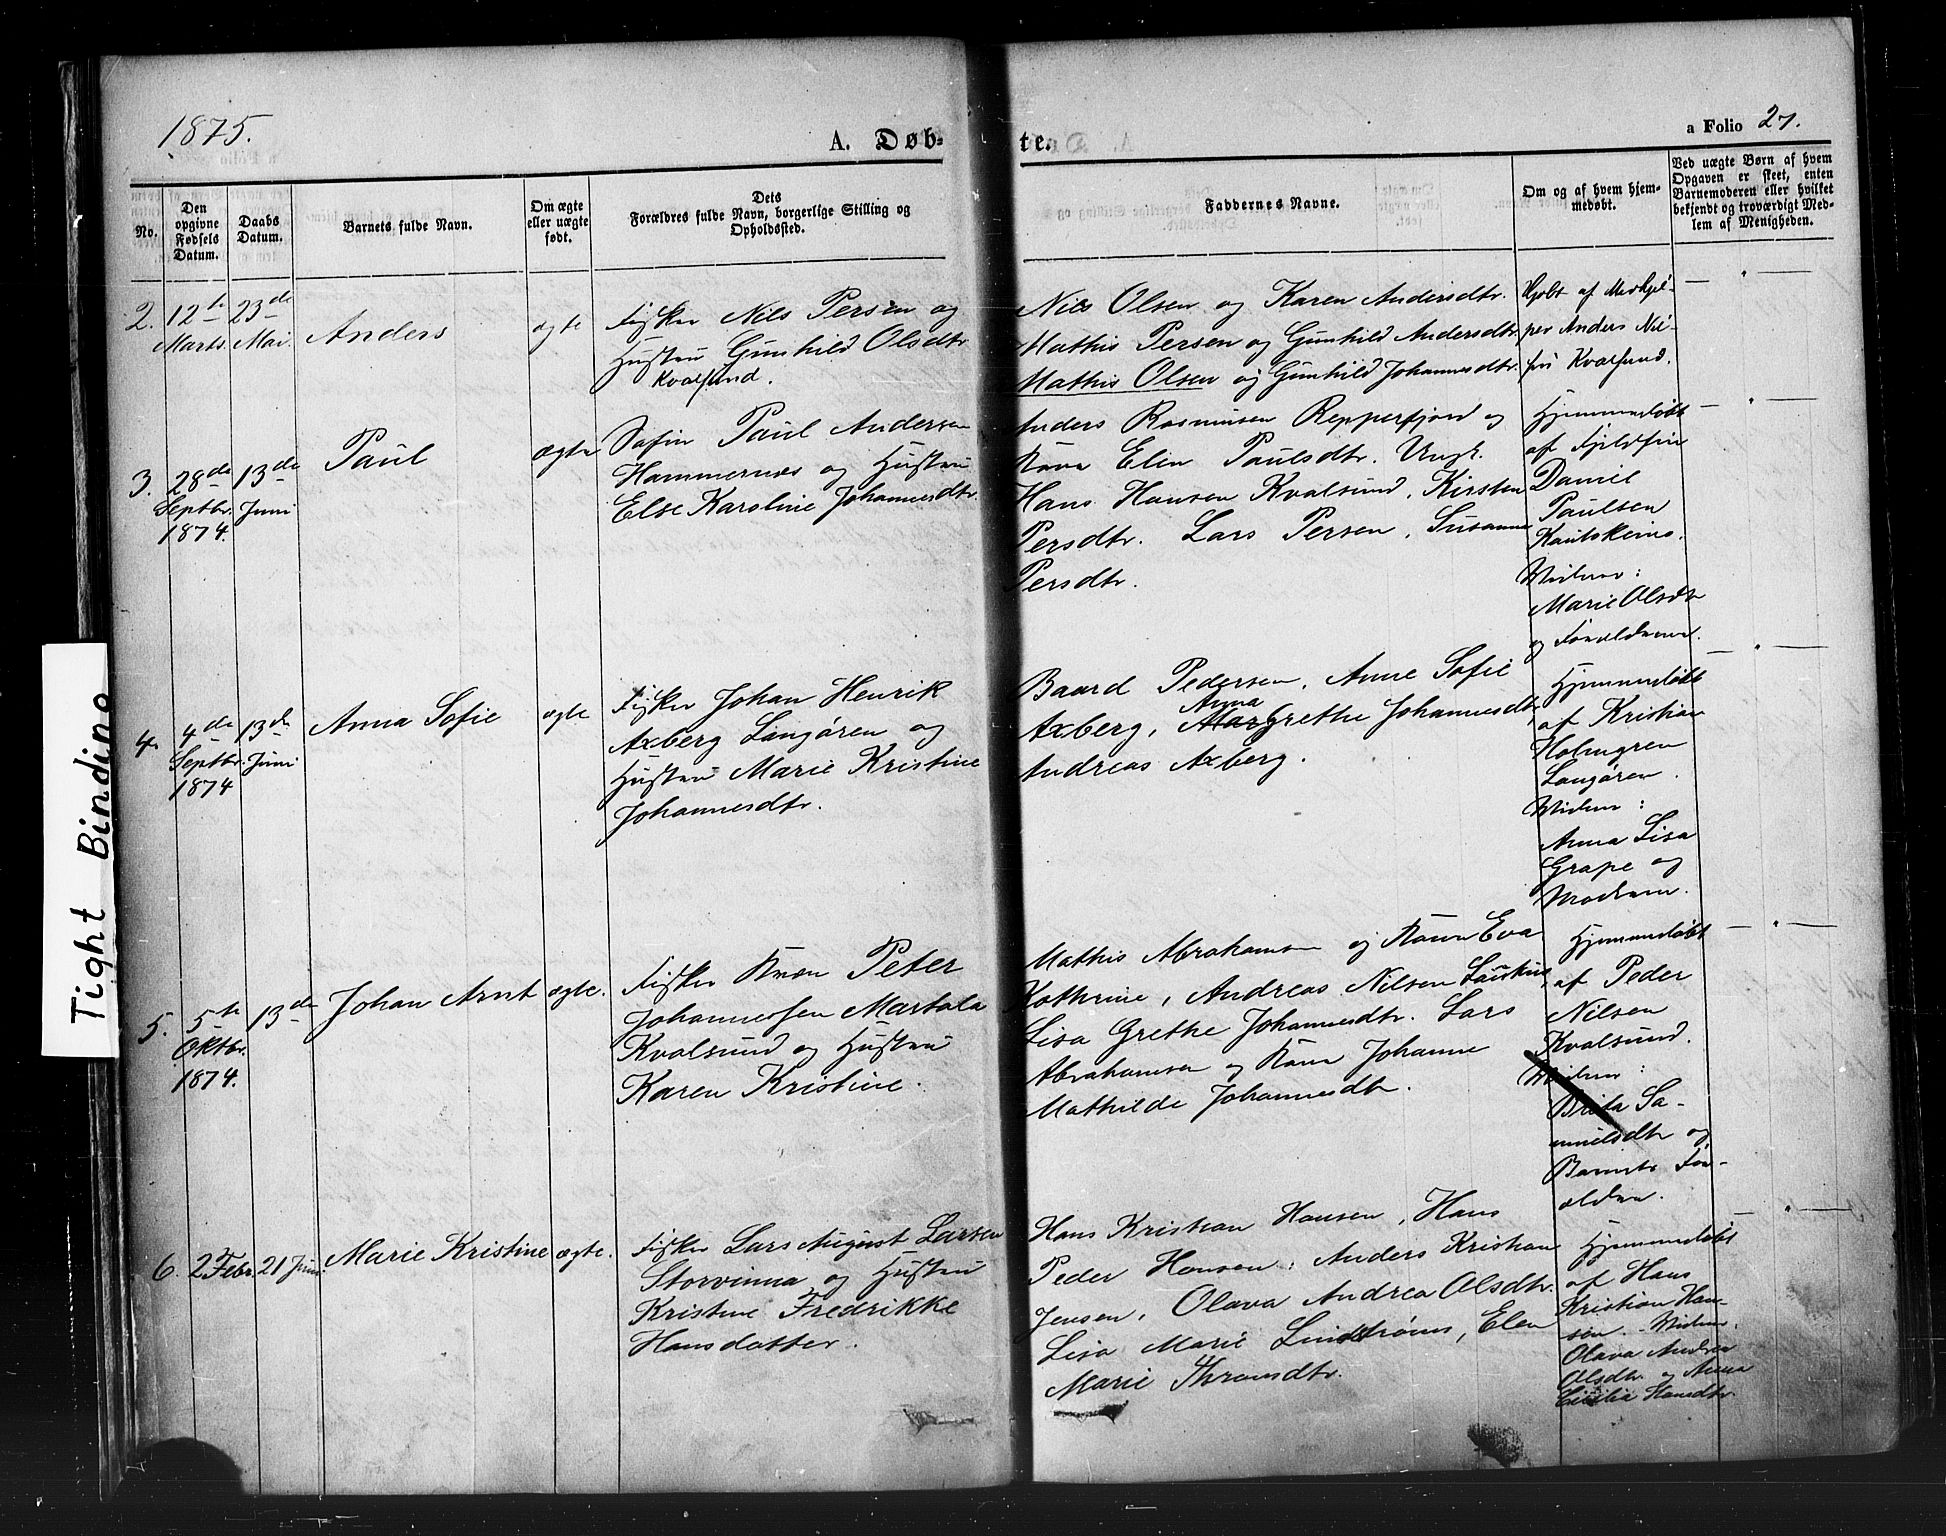 1875.
A. Døb-
te.
a Folio 27.
No.
Den opgivne Fødsels Datum.
Daabs Datum.
Barnets fulde Navn.
Om ægte eller uægte født.
Dets Forældres fulde Navn, borgerlige Stilling og Opholdssted.
Faddernes Navne.
Om og af hvem hjem-
medøbt.
Ved uægte Børn af hvem
Opgaven er skeet, enten
Barnemoderen eller hvilket
bekjendt og troværdigt Med-
lem af Menigheden.
2.
12te
Marts.
23de
Mai.
Anders
ægte
Fisker Nils Persen og
Hustru Gunhild Olsdtr
Kvalsund.
Nils Olsen og Karen Andersdtr.
Mathis Persen og Gunhild Andersdtr.
Mathis Olsen og Gunhild Johannesdtr.
af Medhjæl-
per Anders Nil-
sen Kvalsund.
3.
28de
Septbr.
1874.
13de
Juni
Paul
ægte
Søfin Paul Andersen
Hammernæs og Hustru
Else Karoline Johannesdtr.
Anders Rasmusen Repperfjord og
Kone Elen Paulsdtr. Ungk.
Hans Hansen Kvalsund, Kirsten
Persdtr. Lars Persen, Susanne
Persdtr.
Hjemmedøbt
af Fjeldfin
Daniel
Paulsen
Kautokeino.
Vidner:
Marie Olsdtr
og Forældrene.
4.
4de
Septbr.
1874
13de
Juni
Anna Sofie
ægte
Fisker Johan Henrik
Axberg Langøren og
Hustru Marie Kristine
Johannesdtr.
Baard Pedersen, Anne Sofie
Anna
Axberg, Margrethe Johannesdtr,
Andreas Axberg.
Hjemmedøbt
af Kristian
Holmgren
Langøren.
Vidner:
Anna Lisa
Grape og
Moderen.
5.
5te
Oktbr.
1874.
13de
Johan Arnt
ægte.
Fisker Kvæn Peter
Johannessen Martala
Kvalsund og Hustru
Karen Kristine.
Mathis Abrahamsen og Kone Eva
Kathrine, Andreas Nilsen
Lisa Grethe Johannesdtr. Lars
Abrahamsen og Kone Johanne
Mathilde Johannesdtr.
Hjemmedøbt
af Peder
Nilsen
Kvalsund.
Vidner:
Brita Sa-
muelsdtr og
Barnets For-
ældre.
6.
2 Febr.
21 Juni.
Marie Kristine
ægte.
Fisker Lars August Larsen
Storvinna og Hustru
Kristine Fredrikke
Hansdatter.
Hans Kristian Hansen, Hans
Peder Hansen, Anders Kristian
Jensen, Olava Andrea Olsdtr.
Lisa Marie Lindstrøms, Elen
Marie Thramsdtr.
Hjemmedøbt
af Hans
Kristian Han-
sen. Vidner.
Olava Andrea
Olsdtr. og Anna
Cicilia Hansdtr.
Tight Binding